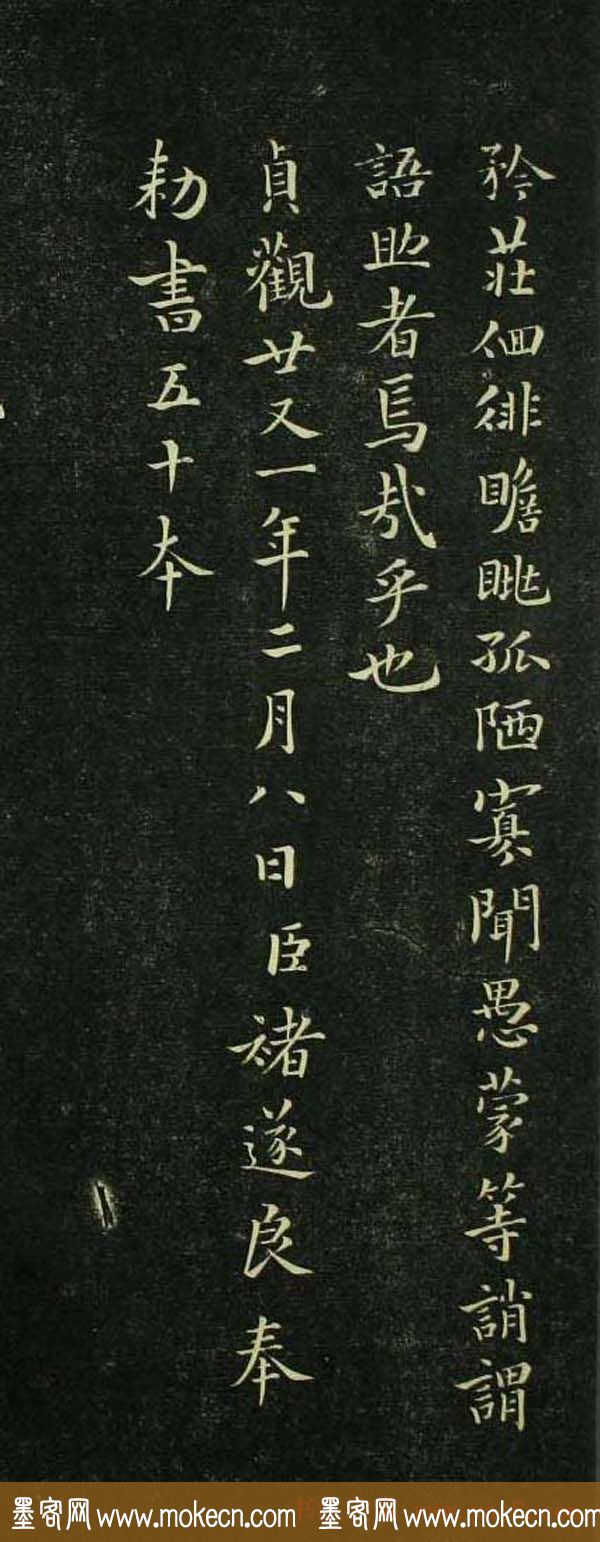 矜莊佪徘瞻眺孤陋寡聞愚蒙等誚謂
語助者焉哉乎也
貞觀廿又一年二月八日臣褚遂良奉
勑書五十本
墨客网 www.mokecn.com 书 墨客网 www.mokecn.com